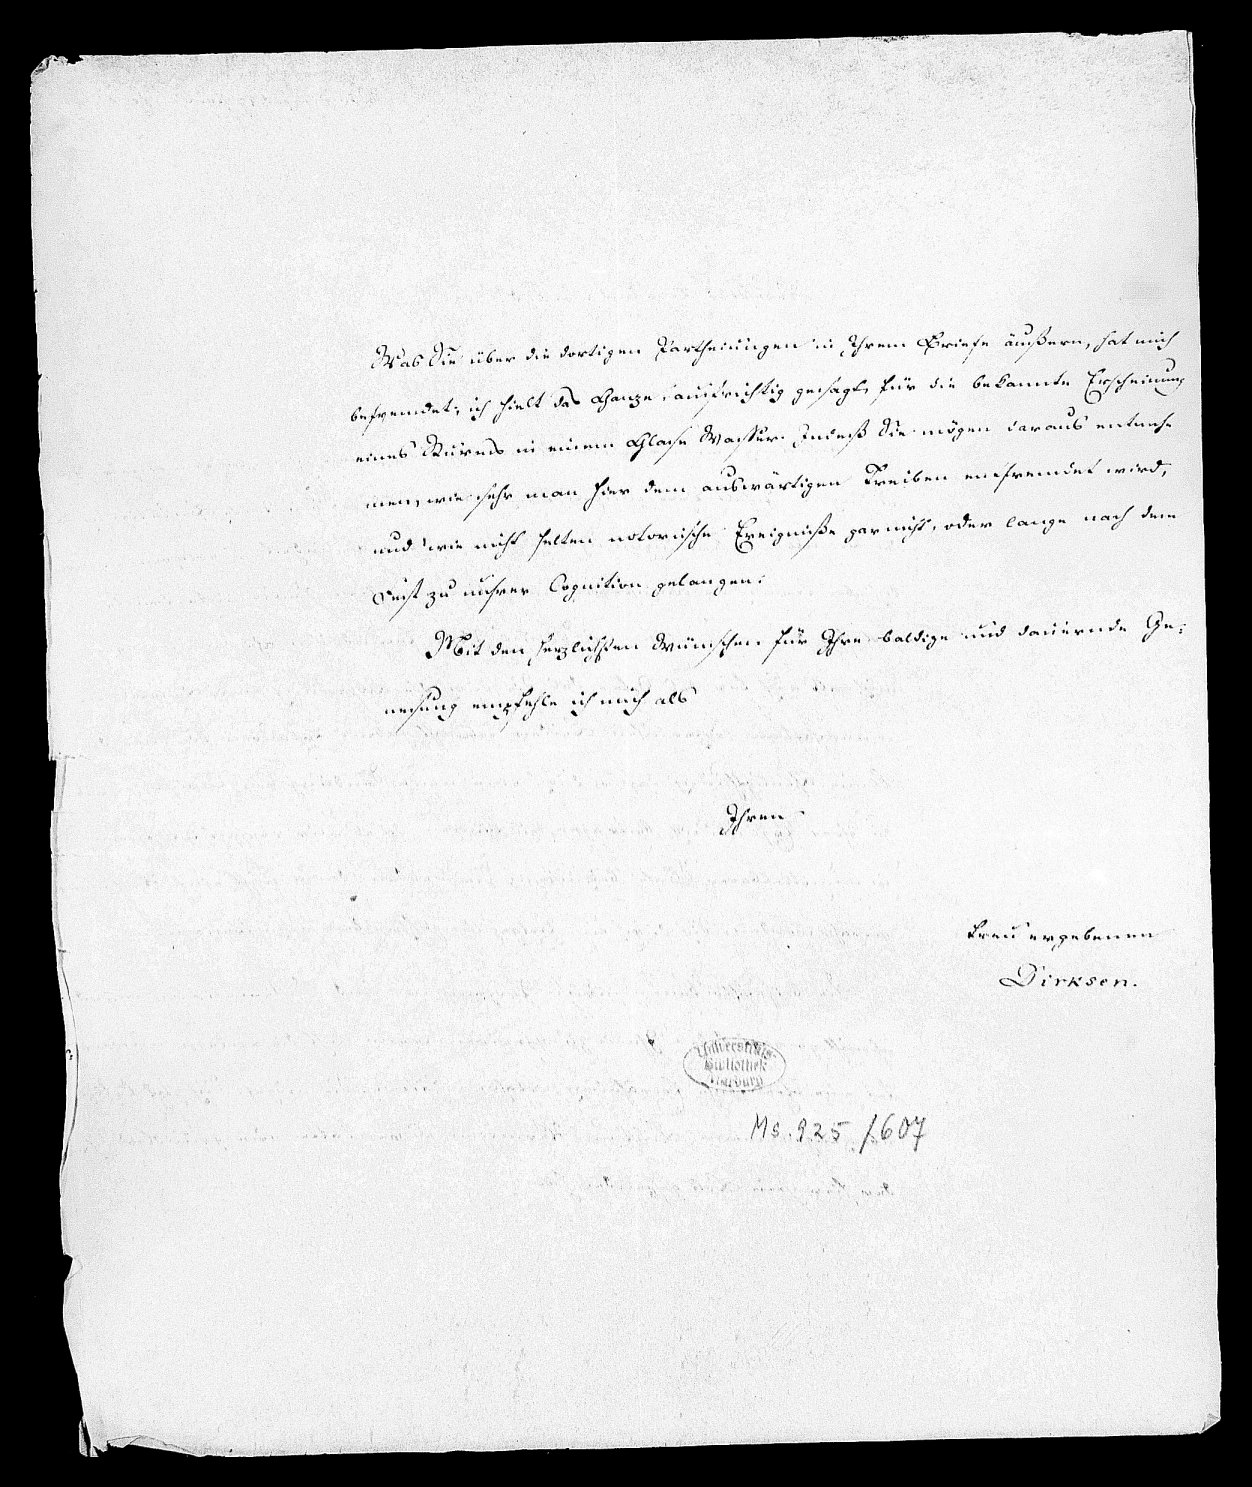 Was Sie über die dortigen Partheiungen in Ihrem Briefe äußern, hat mich
befremdet; ich hielt das Ganze, aufrichtig gesagt, für die bekannte Erscheinung
eines Sturms in einem Glase Wasser. Indeß Sie mögen daraus entneh
men, wie sehr man hier dem auswärtigen Treiben entfremdet wird,
und wie nicht selten notorische Ereigniße gar nicht, oder lange nach dem
zu unsrer Cognition gelangen.
Mit den herzlichsten Wünschen für Ihre baldige und dauernde Ge-
nesung empfehle ich mich als
Ihren
treu ergebenen
Dirksen.
Universitäts-
Bibliothek
Marburg
Ms. 925/607